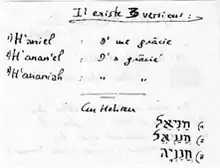 Il existe 3 versions :
1) H'aniel : D' me grâcie
2) H'anan'el : D' a gracié
3) H'ananiah : " "
En Hébreu
חניאל (1
חננאל (2
חנניה (3